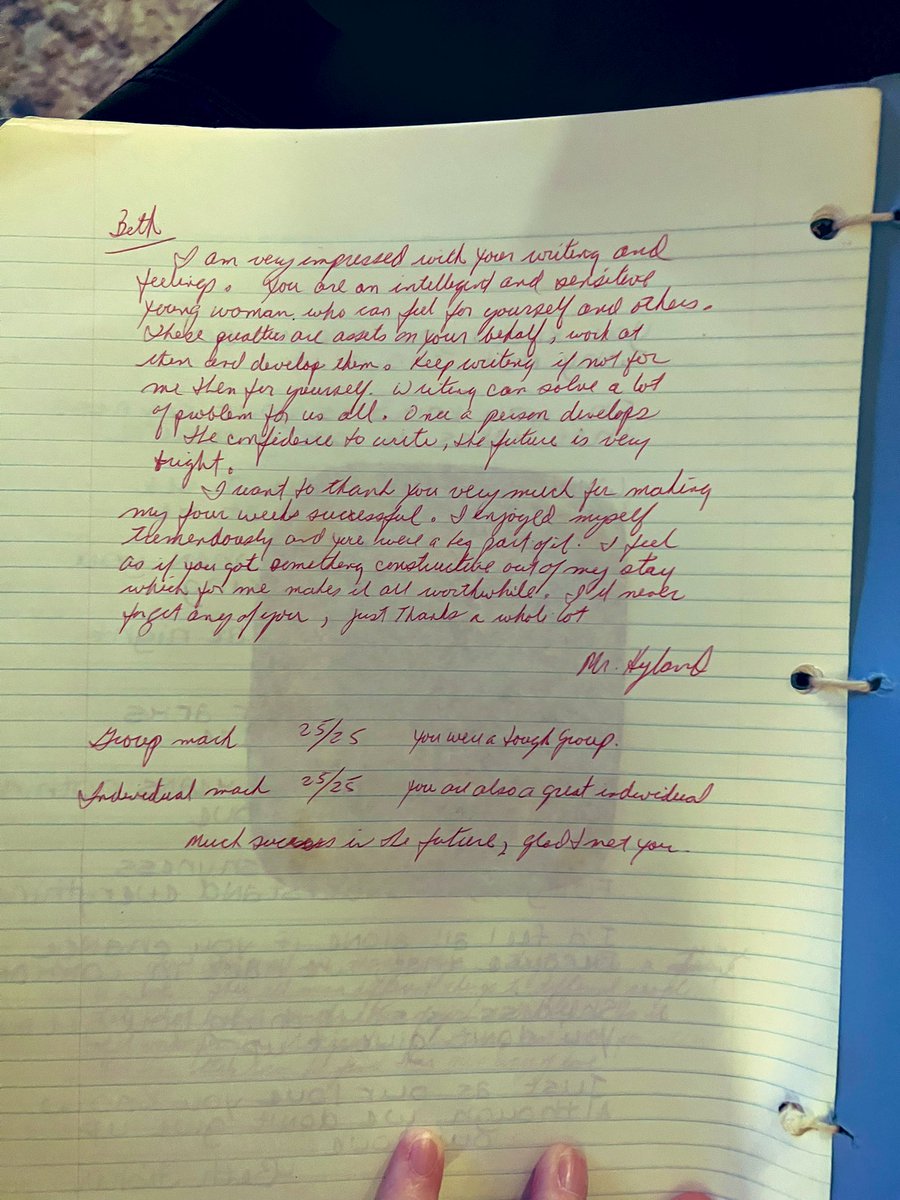 Beth
I am very impressed with your writing and
feelings. You are an intelligent and sensitive
young woman, who can feel for yourself and others.
These qualties are assets on your behalf, work at
them and develop them. Keep writing if not for
me then for yourself. Writing can solve a lot
of problem for us all. Once a person develops
the confidence to write, the future is very
bright.
I want to thank you very much for making
my four weeks successful. I enjoyed myself
tremendously and you were a big part of it. I feel
as if you got something constructive out of my stay
which for me makes it all worthwhile. I'll never
forget any of your, just thanks a whole lot
Mr. Hyland
Group mark 25/25 You were a tough group.
Individual mark 25/25 you are also a great individual
Much success in the future, glad I met you.
I'd feel all alone if you
Just as our love
Although we don't